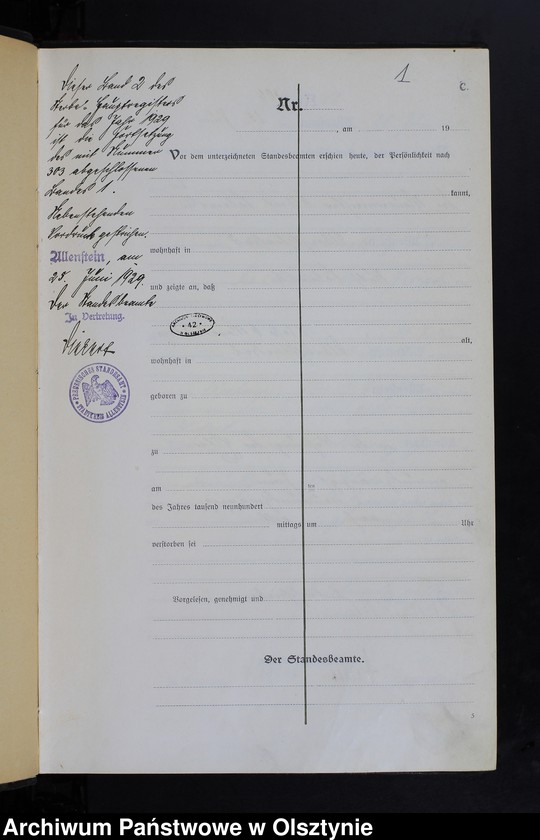 1
C.
Dieser Band 2 des
Sterbe-Hauptregisters
für das Jahr 1929
ist die Fortsetzung
des mit Nummer
303 abgeschlossenen
Bandes 1.
Nebenstehenden
Vordruck gestrichen.
Allenstein, am
25. Juni 1929.
Der Standesbeamte
In Vertretung.
PREUSSISCHES STANDESAMT
STADTKREIS ALLENSTEIN
Nr.
, am 19
Vor dem unterzeichneten Standesbeamten erschien heute, der Persönlichkeit nach
kannt,
wohnhaft in
und zeigte an, daß
42
alt,
wohnhaft in
geboren zu
zu
am
des Jahres tausend neunhundert
mittags um Uhr
verstorben sei
Vorgelesen, genehmigt und
Der Standesbeamte.
Archiwum Państwowe w Olsztynie